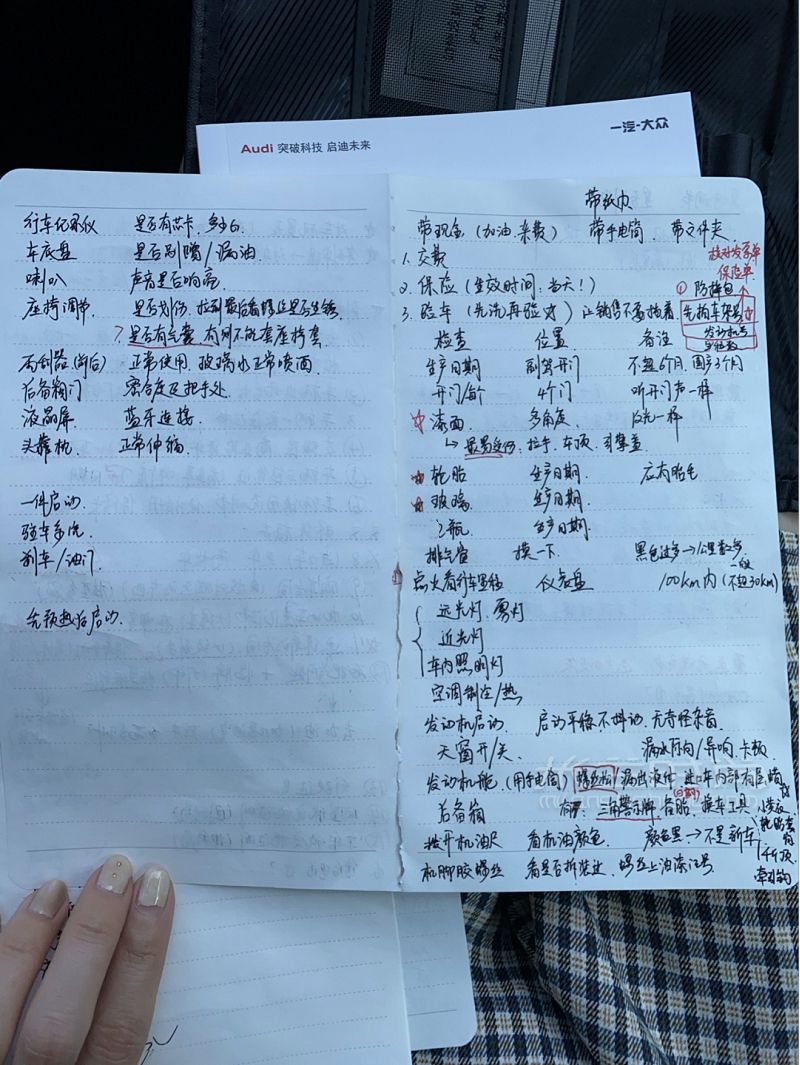 Audi 突破科技 启迪未来
一汽-大众
行车记录仪 是否有芯卡,多少G
车底盘 是否剐蹭/漏油
喇叭 声音是否响亮
座椅调节 是否划伤,拉到最后看螺丝是否生锈
? 是否有气囊,有则不能套座椅套
雨刮器(前后) 正常使用,玻璃水正常喷洒
后备箱门 密合度及把手处
液晶屏 蓝牙连接
头靠枕 正常伸缩
一件启动
驻车系统
刹车/油门
先预热后启动
带纸巾
带现金(加油、来费) 带手电筒 带文件夹
1. 交款
核对发票单
保险单
2. 保险(生效时间:当天!)
① 防掉包
3. 验车(先洗再验收)让销售不要拍着
先拍车架号
发动机号
检查 位置 备注
生产日期 副驾开门 不超6个月,国产3个月
开门/每个 4个门 听开门声一样
☆ 漆面 多角度 反光一样
↳ 最易受伤,拉手、车顶、引擎盖
☆ 轮胎 生产日期 应有胎毛
☆ 玻璃 生产日期
电瓶 生产日期
排气管 摸一下 黑色过多→公里数多
点火看行车里程 仪表盘 100km内(一般不超30km)
远光灯、雾灯
近光灯
车内照明灯
空调制冷/热
发动机启动 启动平稳不抖动,无奇怪杂音
天窗开/关 漏水雨/异响、卡顿
发动机舱(用手电筒)螺丝松/漏出液体
后备箱 有:三角警示牌、备胎、换车工具
千斤顶
牵引钩
拔开机油尺 看机油颜色 颜色黑→不是新车
机脚胶螺丝 看是否拆装过,螺丝上油漆记号